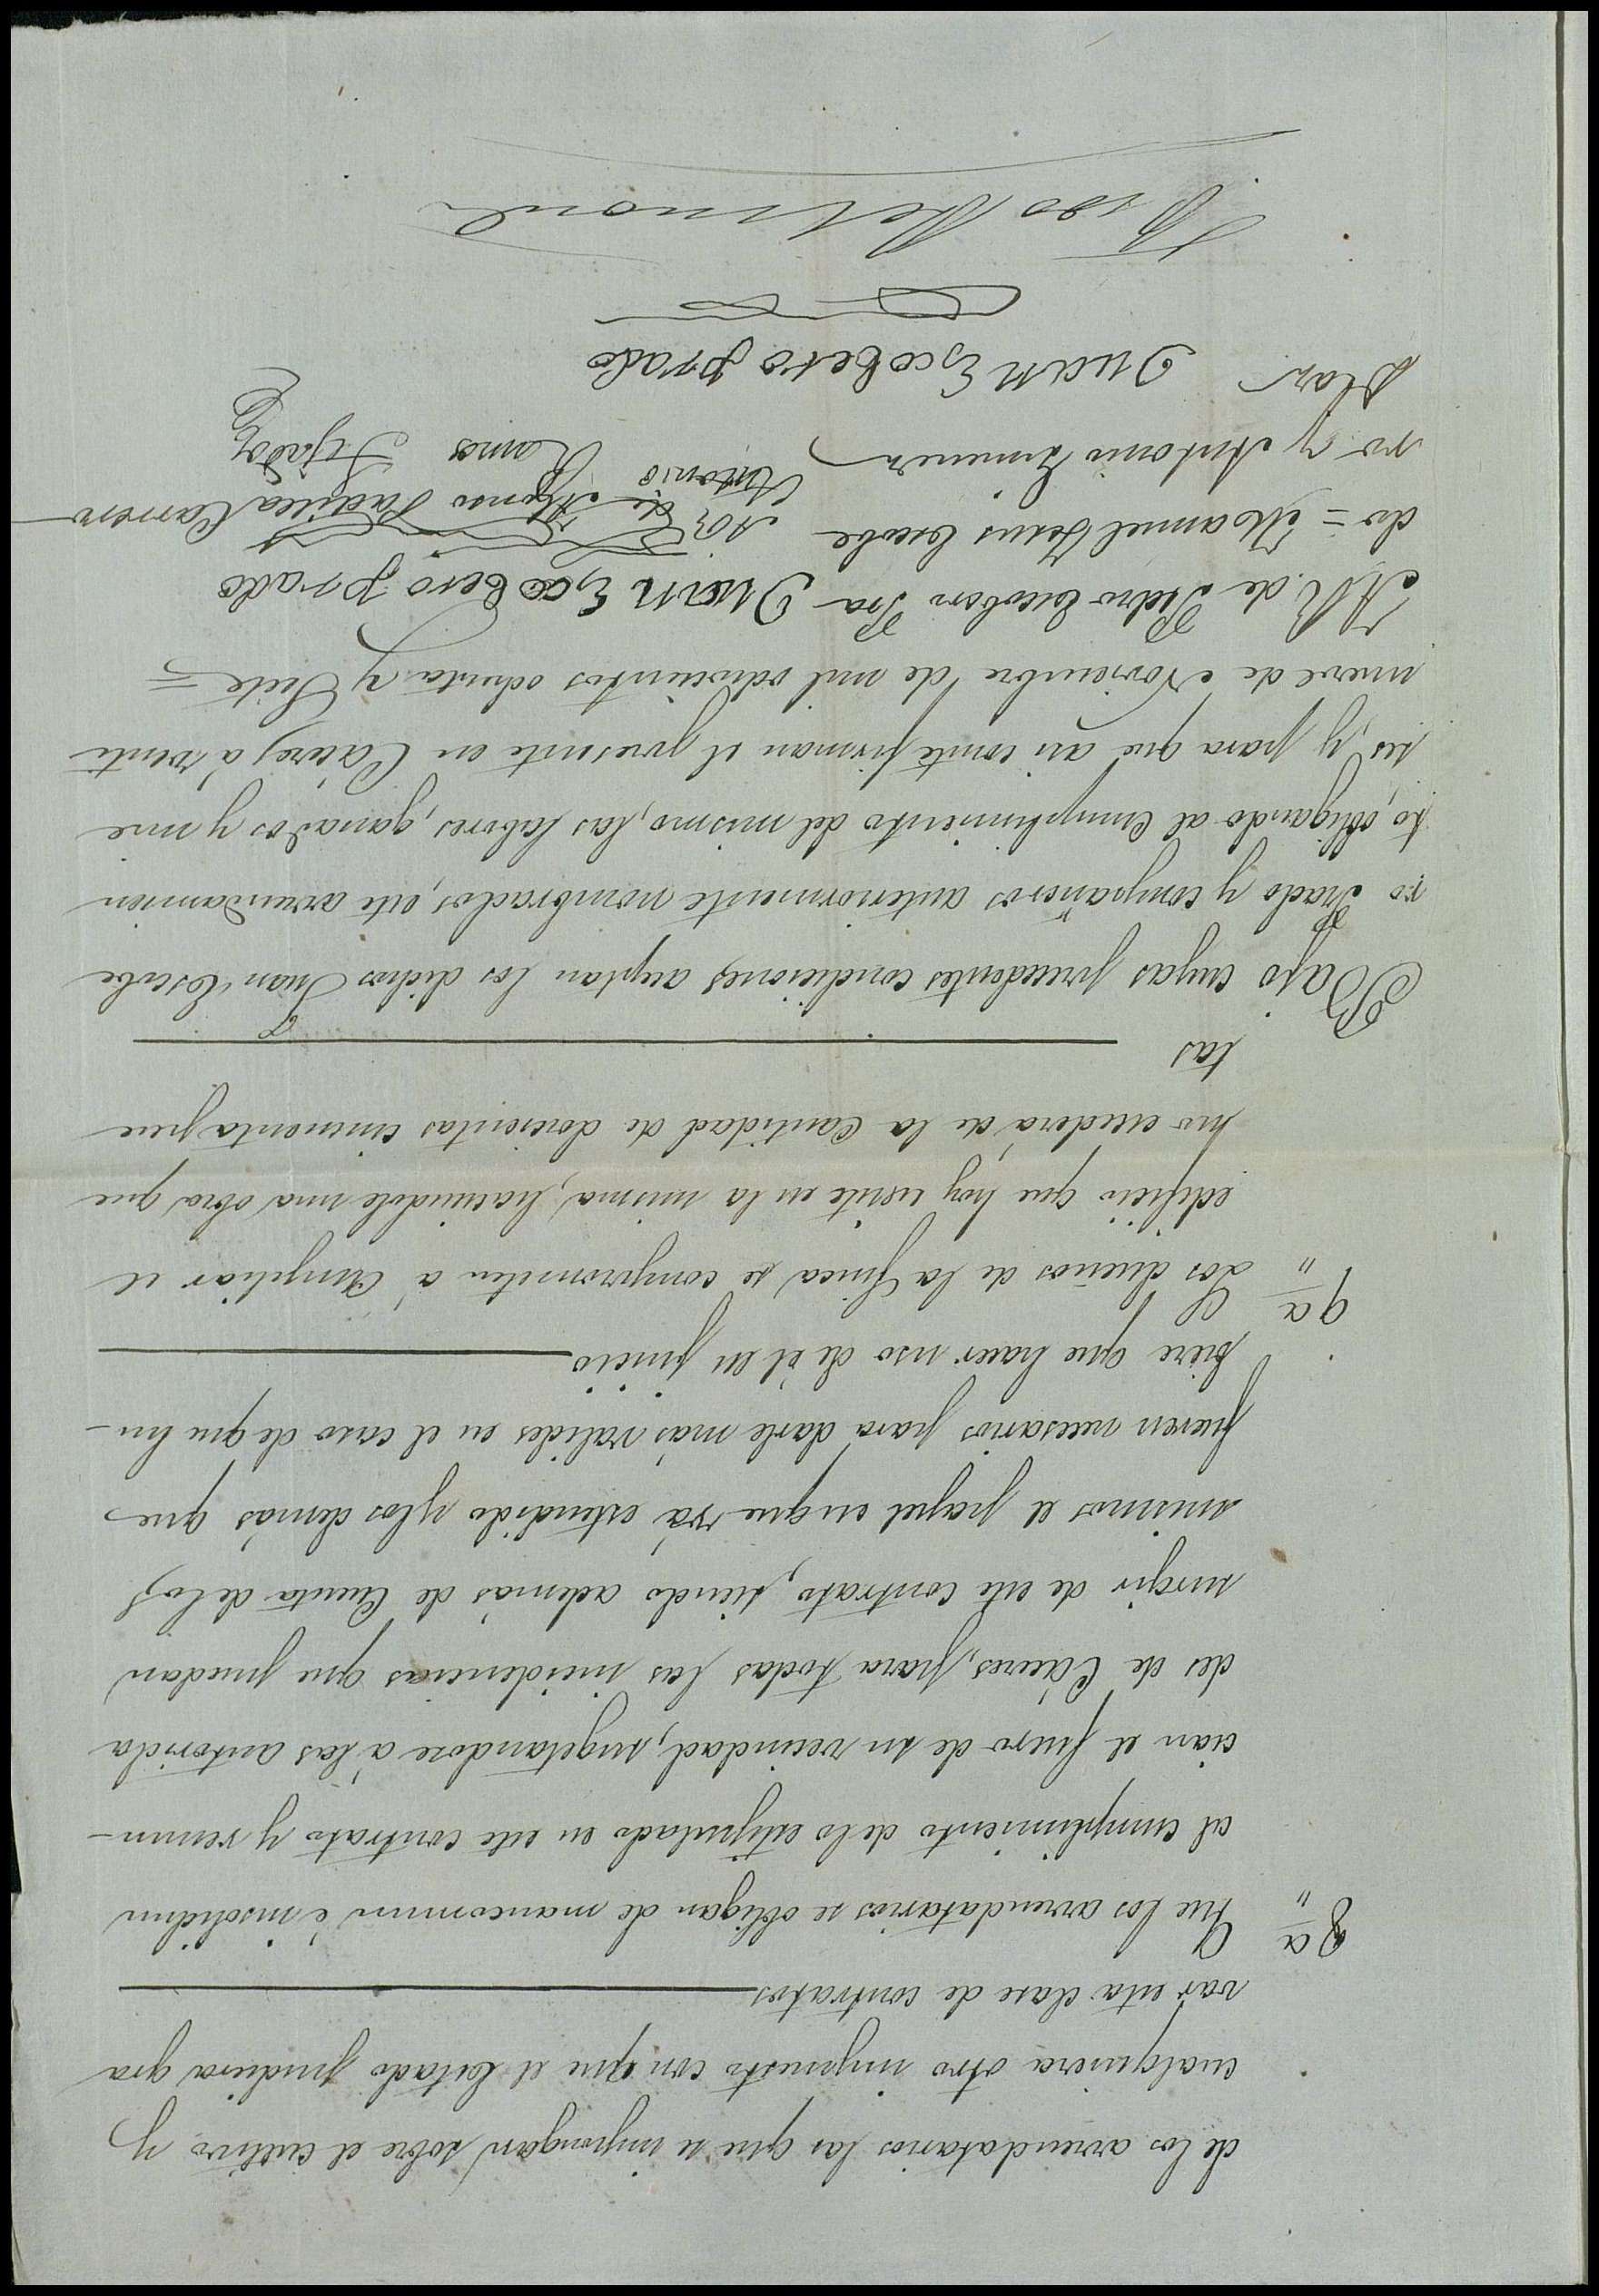 de los arrendatarios las que se impongan sobre el cultivo y
cualquiera otro impuesto con que el Estado pudiera gra
var esta clase de contratos
8ª Que los arrendatarios se obligan de mancomun é insolidun
al cumplimiento de lo estipulado en este contrato y renun-
cian el fuero de su vecindad, sugetandose á las autorida
des de Cáceres, para todas las incidencias que puedan
surgir de este contrato, siendo además de Cuenta de los
mismos el papel en que vá estendido y los demás que
fueren necesarios para darle más válides en el caso de que hu-
biere que hacer uso de él en juicio
9ª Los dueños de la finca se comprometen á Ampliar el
edificio que hoy ecsiste en la misma, haciendole una obra que
no ecederá de la Cantidad de doscientas cincuenta pese
tas
Bajo cuyas precedentes condiciones aceptan los dichos Juan Escobe
ro Prado y compañeros anteriormente nombrados, este arrendamien
to, obligando al Cumplimiento del mismo, las labores, ganados y mie
ses y, para que asi conste firman el presente en Cáceres á venti
nueve de Noviembre de mil ochocientos ochenta y Siete =
A R. de Pedro Escobero Pra
do = Manuel Jesus Escobe
ro y Antonio Jimenez
Juan Escobero prado
de Alfonso Padilla Carrero
Antonio Ramos Tejado
Juan Escobero prado